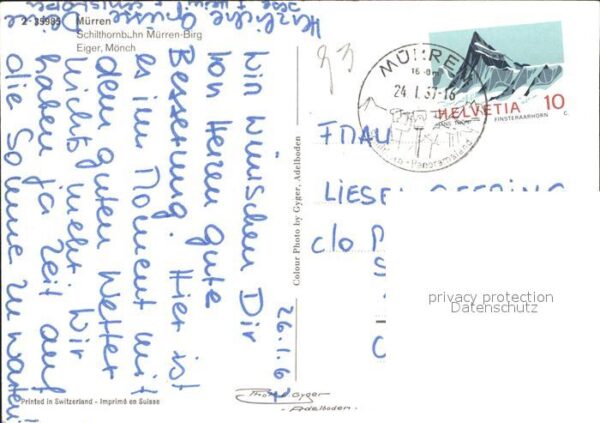 2-35985 Mürren
Schilthornbahn Mürren-Birg
Eiger, Mönch
26.1.6
Wir wünschen Dir
von Herzen gute
Besserung. Hier ist
es im Moment mit
dem guten Wetter
nichts mehr. Wir
haben ja Zeit auf
die Sonne zu warten
Herzliche Grüsse
Colour Photo by Gyger, Adelboden
Printed in Switzerland - Imprimé en Suisse
Photo Gyger
Adelboden
MÜRREN
24.1.67-16
HELVETIA 10 c.
FINSTERAARHORN
FRAU
LIESE
c/o
privacy protection
Datenschutz